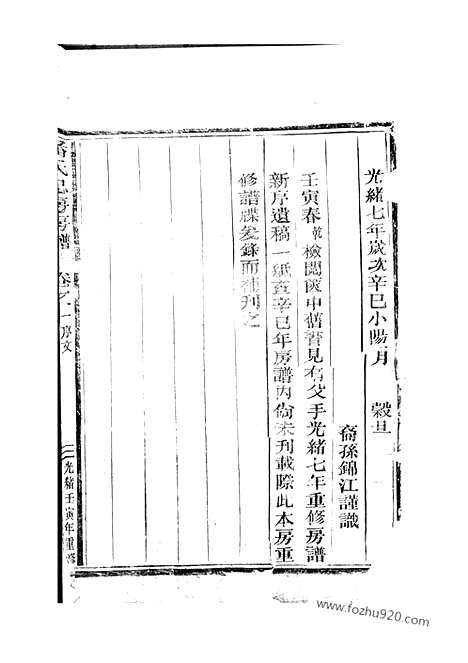 光緒七年歲次辛巳小陽月 穀旦
裔孫錦江謹識
壬寅春檢閱篋中舊書見有父手光緒七年重修房譜
新序遺稿一紙查辛巳年房譜內尚未刊載際此本房重
修譜牒爰錄而補刊之
氏巳房房譜 卷之一 序文 二 光緒壬寅年重修
www.fozhu920.com